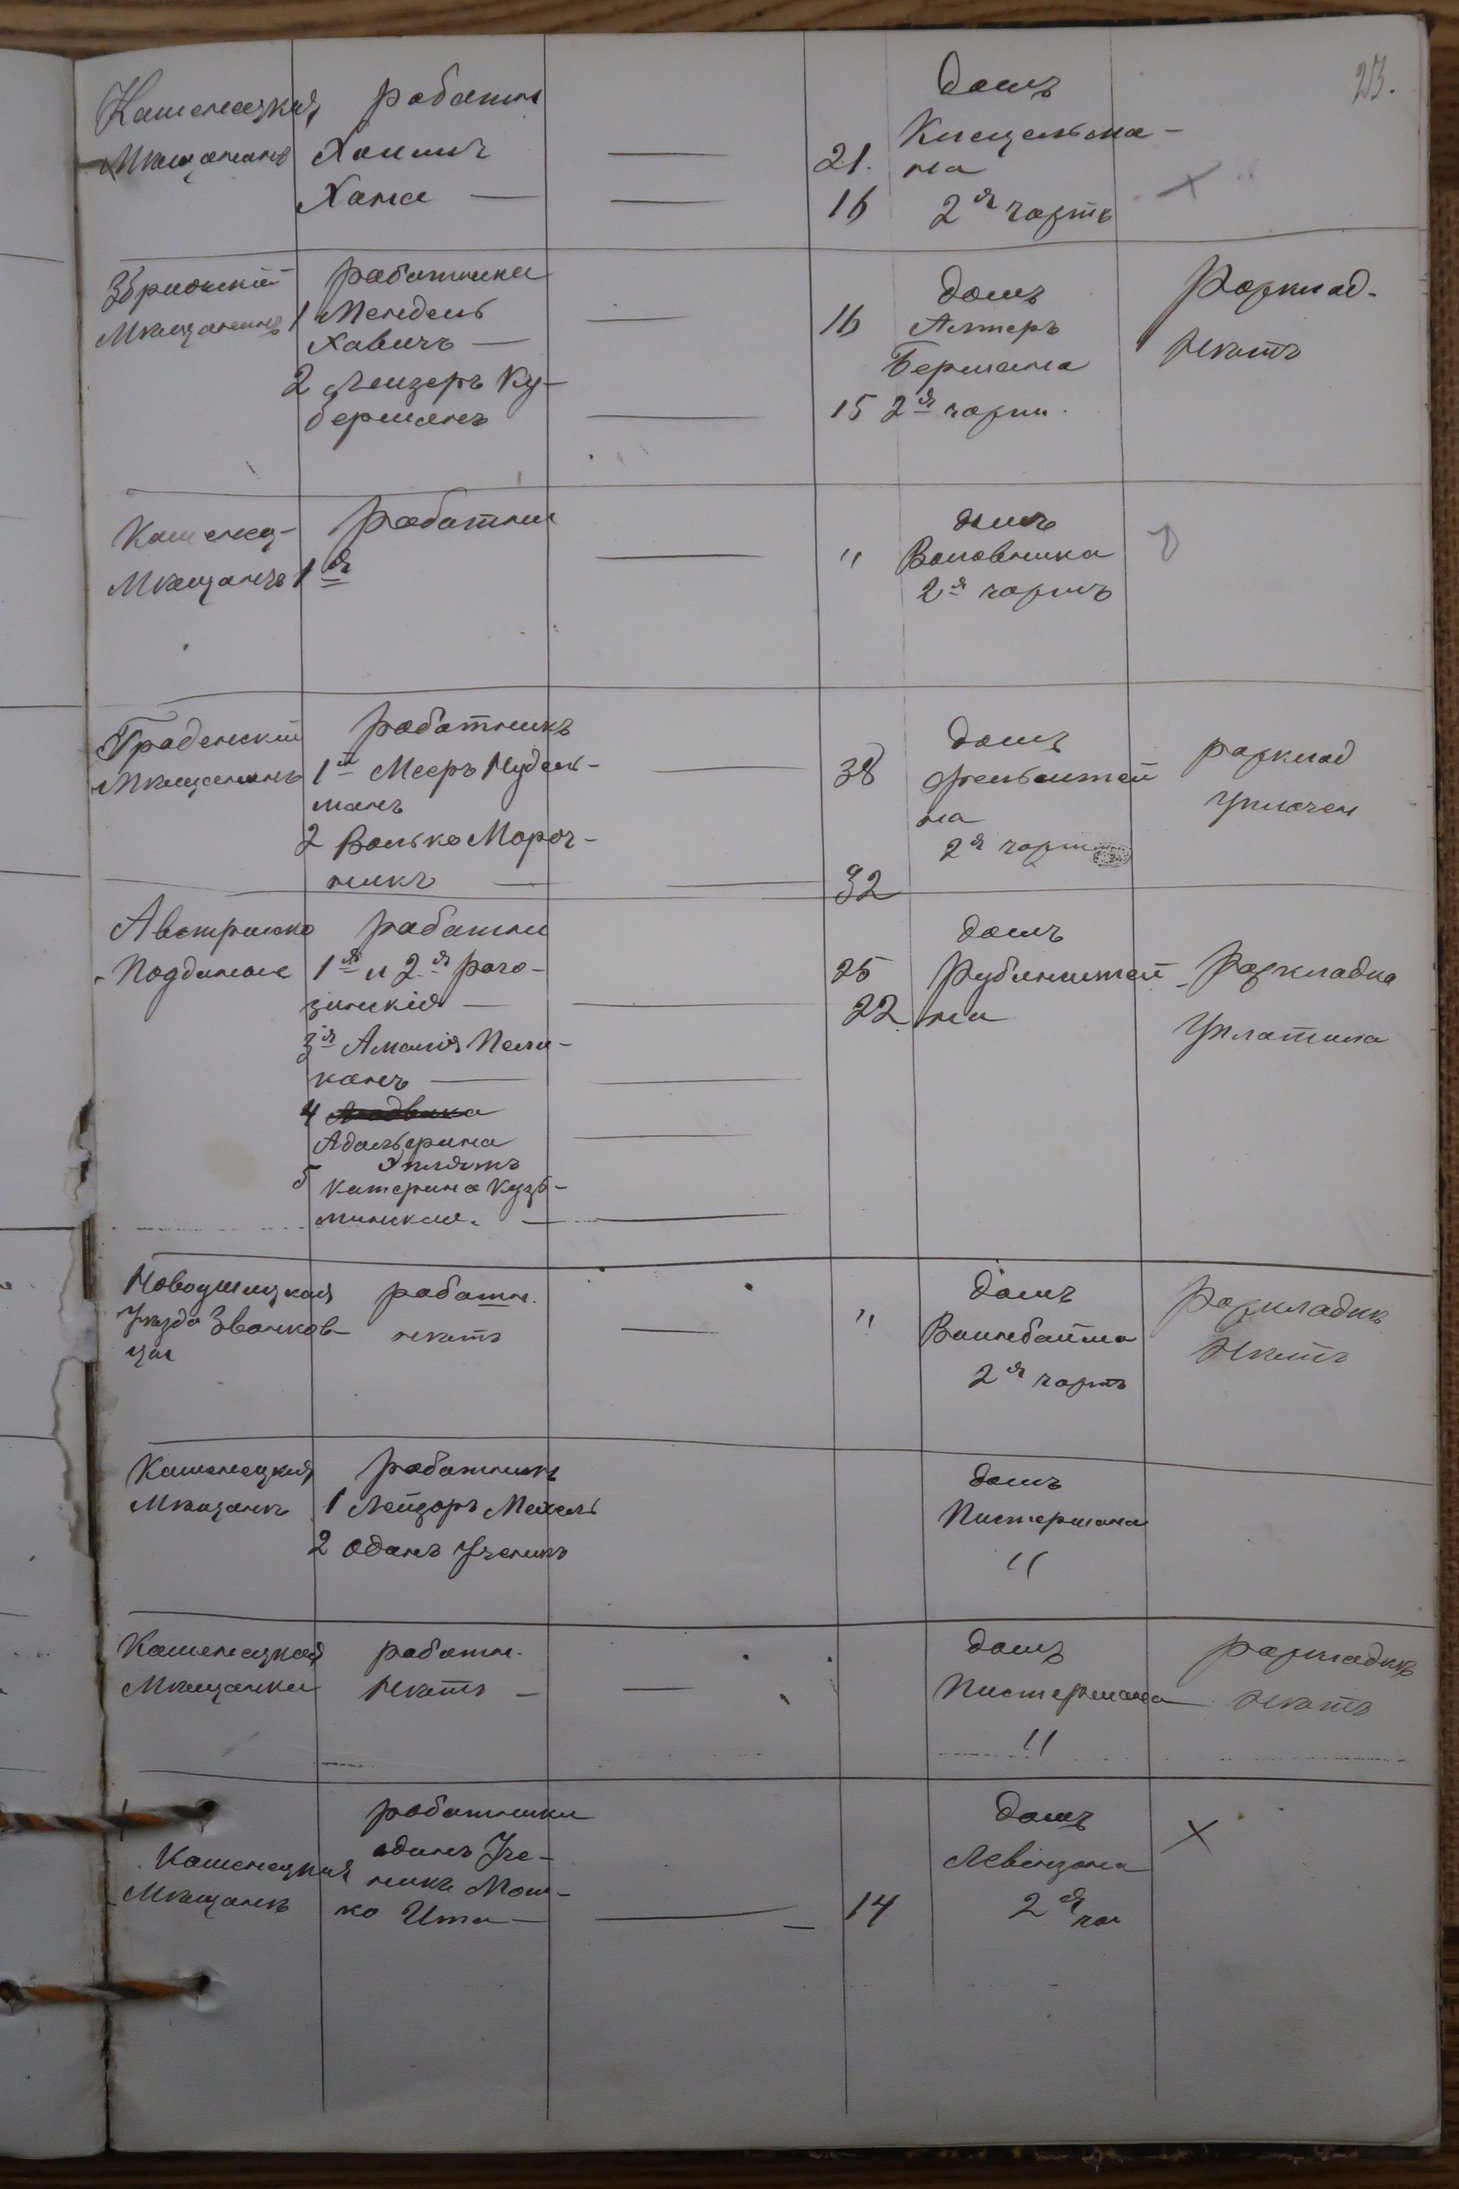 23.
Каменецкія
Мѣщанинъ
работн
Хаимъ
Хана —
21.
16
домъ
Кисельма-
на
2я часть
×
Збрижскій
Мѣщанинъ
работники
1 Мендель
Хавичъ —
2 Лейзеръ Ку-
берманъ
16
15
домъ
Алтеръ
Бермана
2я части
Расклад-
нѣтъ
Каменец-
Мѣщанъ
работни
1я
"
домъ
Воловника
2я часть
Граденскій
Мѣщанинъ
работникъ
1й Мееръ Нудель-
манъ
2 Волько Мароч-
никъ —
38
32
домъ
Фельштей
на
2я части
расклад
уплочен
Австрійско
Подданые
работни
1я и 2я Раго-
зинскія —
3я Амалія Пели-
канъ —
4 Людвика
Адальерина
Эплятъ
5 Катерина Кузь-
минская. —
25
22
домъ
Рубинштей
на
Раскладка
Уплатила
Новоушицкая
Уѣзда Званков-
цы
работн.
нѣтъ
"
домъ
Вайнбайма
2я часть
Раскладки
нѣтъ
Каменецкія
Мѣщанъ
работникъ
1 Лейзоръ Мехель
2 одинъ Ученикъ
домъ
Пистермана
"
Каменецкая
Мѣщанки
работн.
нѣтъ —
домъ
Пистермана
"
раскладки
нѣтъ
Каменецкія
Мѣщанъ
работники
одинъ Уче-
никъ Мош-
ко Ита —
14
домъ
Левинзона
2я
час
×